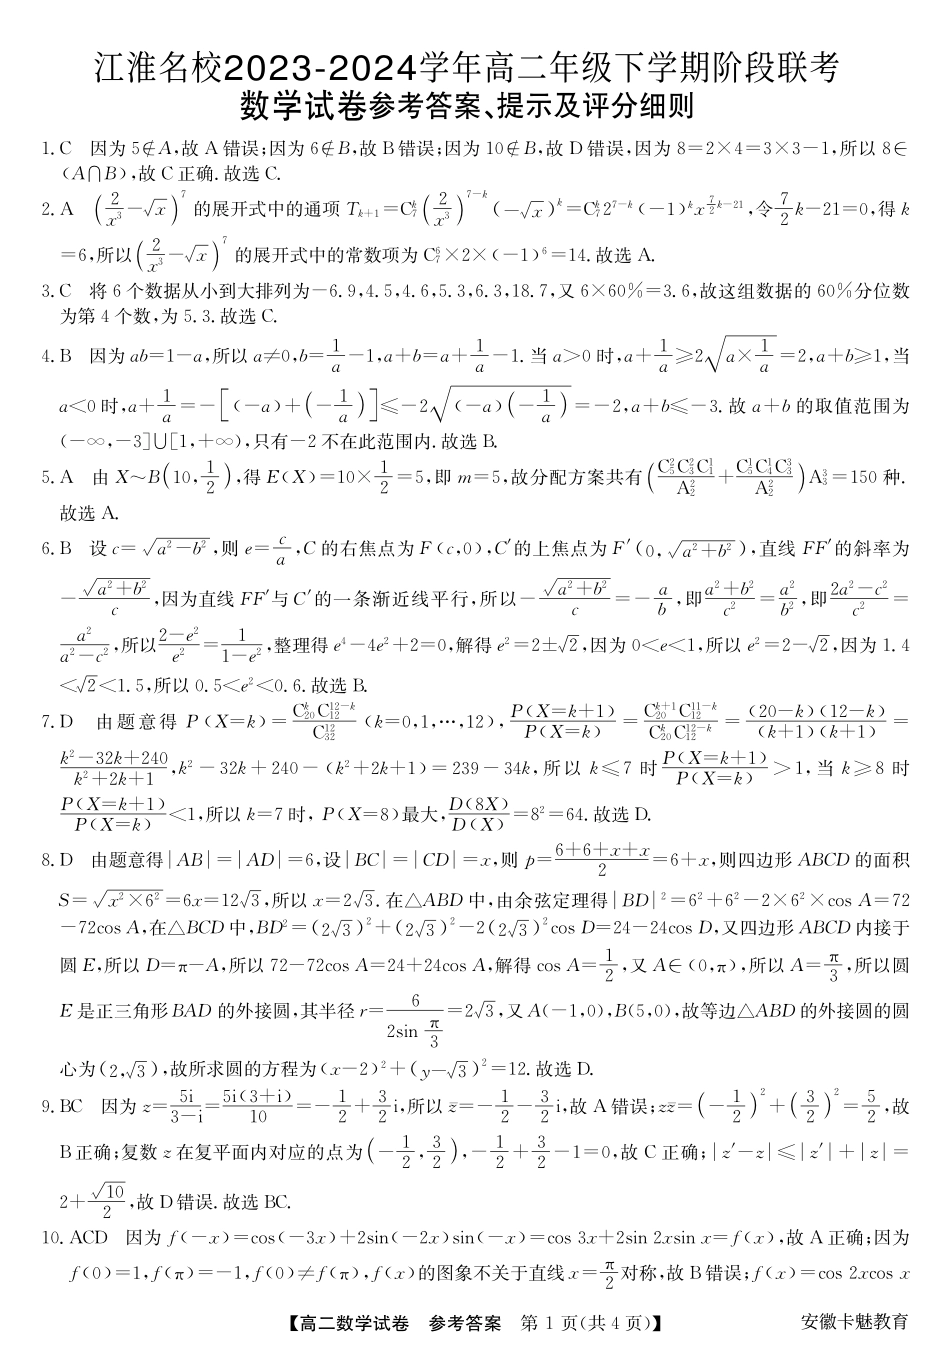 江淮名校2023-2024学年高二年级下学期阶段联考
数学试卷参考答案、提示及评分细则
1. C 因为 5∉A,故 A 错误;因为 6∉B,故 B 错误;因为 10∉B,故 D 错误,因为 8=2×4=3×3−1,所以 8∈
(A∩B),故 C 正确. 故选 C.
2. A (2/x³−√x)⁷ 的展开式中的通项 T_{k+1}=C₇^k(2/x³)^{7−k}(−√x)^k=C₇^k2^{7−k}(−1)^k x^{7/2k−21},令7/2k−21=0,得 k
=6,所以(2/x³−√x)⁷ 的展开式中的常数项为 C₇⁶×2×(−1)⁶=14. 故选 A.
3. C 将 6 个数据从小到大排列为−6.9,4.5,4.6,5.3,6.3,18.7,又 6×60%=3.6,故这组数据的 60%分位数
为第 4 个数,为 5.3. 故选 C.
4. B 因为 ab=1−a,所以 a≠0,b=1/a−1,a+b=a+1/a−1. 当 a>0 时,a+1/a≥2√(a×1/a)=2,a+b≥1,当
a<0 时,a+1/a=−[(−a)+(−1/a)]≤−2√((−a)(−1/a))=−2,a+b≤−3. 故 a+b 的取值范围为
(−∞,−3]∪[1,+∞),只有−2 不在此范围内. 故选 B.
5. A 由 X~B(10,1/2),得 E(X)=10×1/2=5,即 m=5,故分配方案共有(C₅²C₃²C₁¹/A₂²+C₅¹C₄¹C₃³/A₂²)A₃³=150 种.
故选 A.
6. B 设 c=√(a²−b²),则 e=c/a,C 的右焦点为 F(c,0),C′的上焦点为 F′(0,√(a²+b²)),直线 FF′的斜率为
−√(a²+b²)/c,因为直线 FF′与 C′的一条渐近线平行,所以−√(a²+b²)/c=−a/b,即(a²+b²)/c²=a²/b²,即(2a²−c²)/c²=
a²/(a²−c²),所以(2−e²)/e²=1/(1−e²),整理得 e⁴−4e²+2=0,解得 e²=2±√2,因为 0<e<1,所以 e²=2−√2,因为 1.4
<√2<1.5,所以 0.5<e²<0.6. 故选 B.
7. D 由题意得 P(X=k)=C₂₀^kC₁₂^{12−k}/C₃₂^{12}(k=0,1,…,12),P(X=k+1)/P(X=k)=C₂₀^{k+1}C₁₂^{11−k}/C₂₀^kC₁₂^{12−k}=(20−k)(12−k)/(k+1)(k+1)=
(k²−32k+240)/(k²+2k+1),k²−32k+240−(k²+2k+1)=239−34k,所以 k≤7 时P(X=k+1)/P(X=k)>1,当 k≥8 时
P(X=k+1)/P(X=k)<1,所以 k=7 时,P(X=8)最大,D(8X)/D(X)=8²=64. 故选 D.
8. D 由题意得|AB|=|AD|=6,设|BC|=|CD|=x,则 p=(6+6+x+x)/2=6+x,则四边形 ABCD 的面积
S=√(x²×6²)=6x=12√3,所以 x=2√3. 在△ABD 中,由余弦定理得|BD|²=6²+6²−2×6²×cos A=72
−72cos A,在△BCD 中,BD²=(2√3)²+(2√3)²−2(2√3)²cos D=24−24cos D,又四边形 ABCD 内接于
圆 E,所以 D=π−A,所以 72−72cos A=24+24cos A,解得 cos A=1/2,又 A∈(0,π),所以 A=π/3,所以圆
E 是正三角形 BAD 的外接圆,其半径 r=6/(2sin π/3)=2√3,又 A(−1,0),B(5,0),故等边△ABD 的外接圆的圆
心为(2,√3),故所求圆的方程为(x−2)²+(y−√3)²=12. 故选 D.
9. BC 因为 z=5i/(3−i)=5i(3+i)/10=−1/2+3/2i,所以z̄=−1/2−3/2i,故 A 错误;zz̄=(−1/2)²+(3/2)²=5/2,故
B 正确;复数 z 在复平面内对应的点为(−1/2,3/2),−1/2+3/2−1=0,故 C 正确;|z′−z|≤|z′|+|z|=
2+√10/2,故 D 错误. 故选 BC.
10. ACD 因为 f(−x)=cos(−3x)+2sin(−2x)sin(−x)=cos 3x+2sin 2xsin x=f(x),故 A 正确;因为
f(0)=1,f(π)=−1,f(0)≠f(π),f(x)的图象不关于直线 x=π/2对称,故 B 错误;f(x)=cos 2xcos x
【高二数学试卷 参考答案 第 1 页(共 4 页)】 安徽卡魅教育